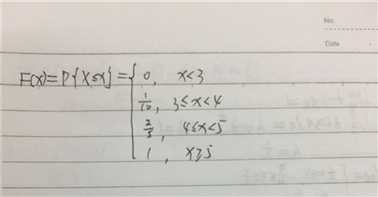 No.
Date
F(x)=P{X≤x}={0, x<3
1/10, 3≤x<4
2/5, 4≤x<5
1, x≥5